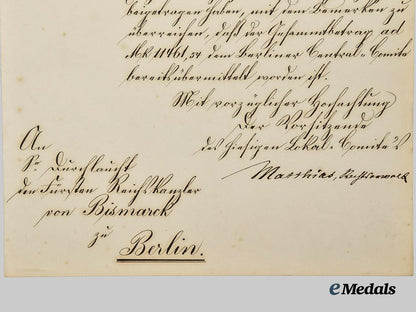 beigetragen haben, mit dem Bemerken zu
überreichen, daß der Gesammtbetrag ad
Mk 11461,54 dem Berliner Central-Comité
bereits übermittelt worden ist.
Mit vorzüglicher Hochachtung
Der Vorsitzende
des hiesigen Lokal-Comité's
Matthias, Rechtsanwalt
An
Sr. Durchlaucht
den Fürsten Reichskanzler
von Bismarck
zu
Berlin.
eMedals